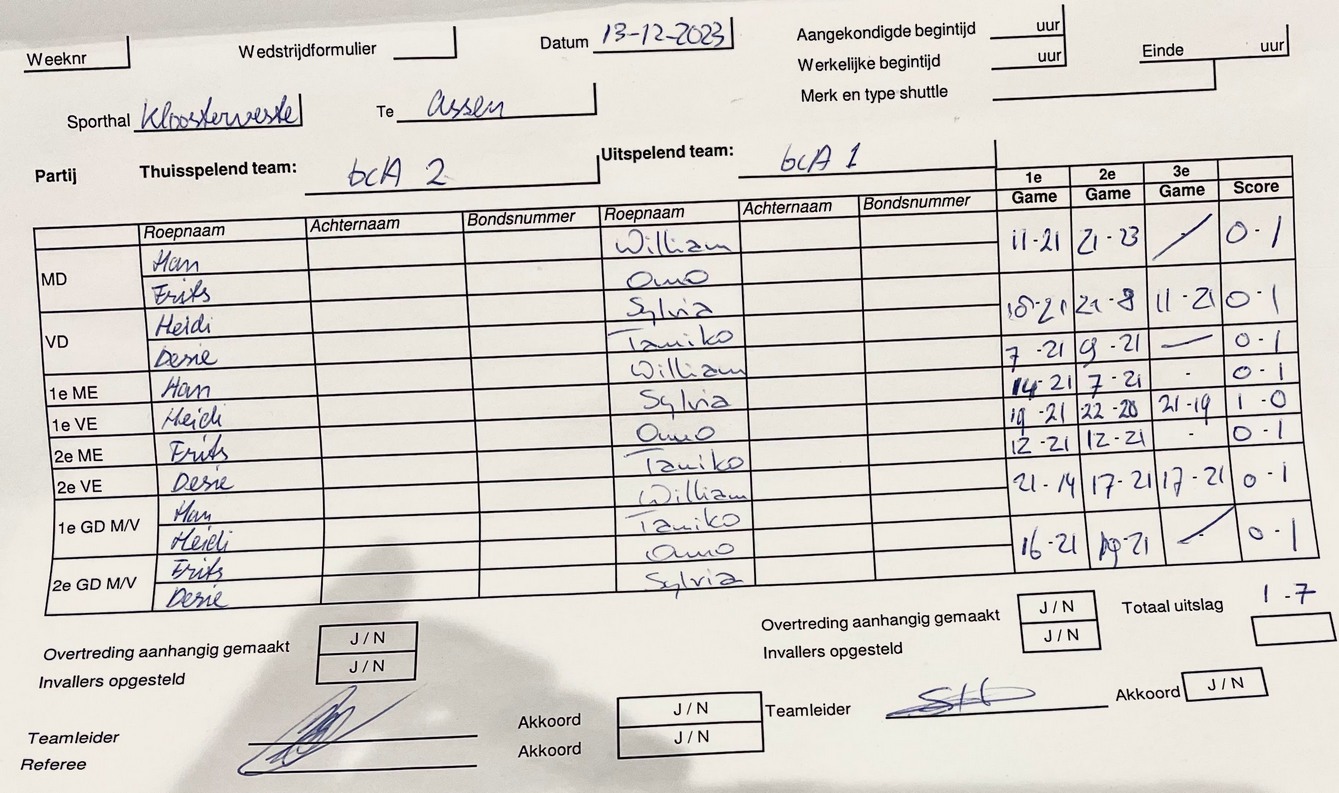 Weeknr Wedstrijdformulier Datum 13-12-2023 Aangekondigde begintijd uur
Werkelijke begintijd uur Einde uur
Merk en type shuttle
Sporthal Kloosterveste Te Assen
Partij Thuisspelend team: bcA 2 Uitspelend team: bcA 1
1e Game 2e Game 3e Game Score
Roepnaam Achternaam Bondsnummer Roepnaam Achternaam Bondsnummer
MD Han William 11-21 21-23 / 0-1
Frits Onno
VD Heidi Sylvia 18-21 21-8 11-21 0-1
Desie Taniko
1e ME Han William 7-21 9-21 — 0-1
1e VE Heidi Sylvia 14-21 7-21 - 0-1
2e ME Frits Onno 19-21 22-20 21-19 1-0
2e VE Desie Taniko 12-21 12-21 - 0-1
1e GD M/V Han William 21-19 17-21 17-21 0-1
Heidi Taniko
2e GD M/V Frits Onno 16-21 19-21 / 0-1
Desie Sylvia
Overtreding aanhangig gemaakt J / N Overtreding aanhangig gemaakt J / N Totaal uitslag 1-7
Invallers opgesteld J / N Invallers opgesteld J / N
Teamleider Akkoord J / N Teamleider Akkoord J / N
Referee Akkoord J / N